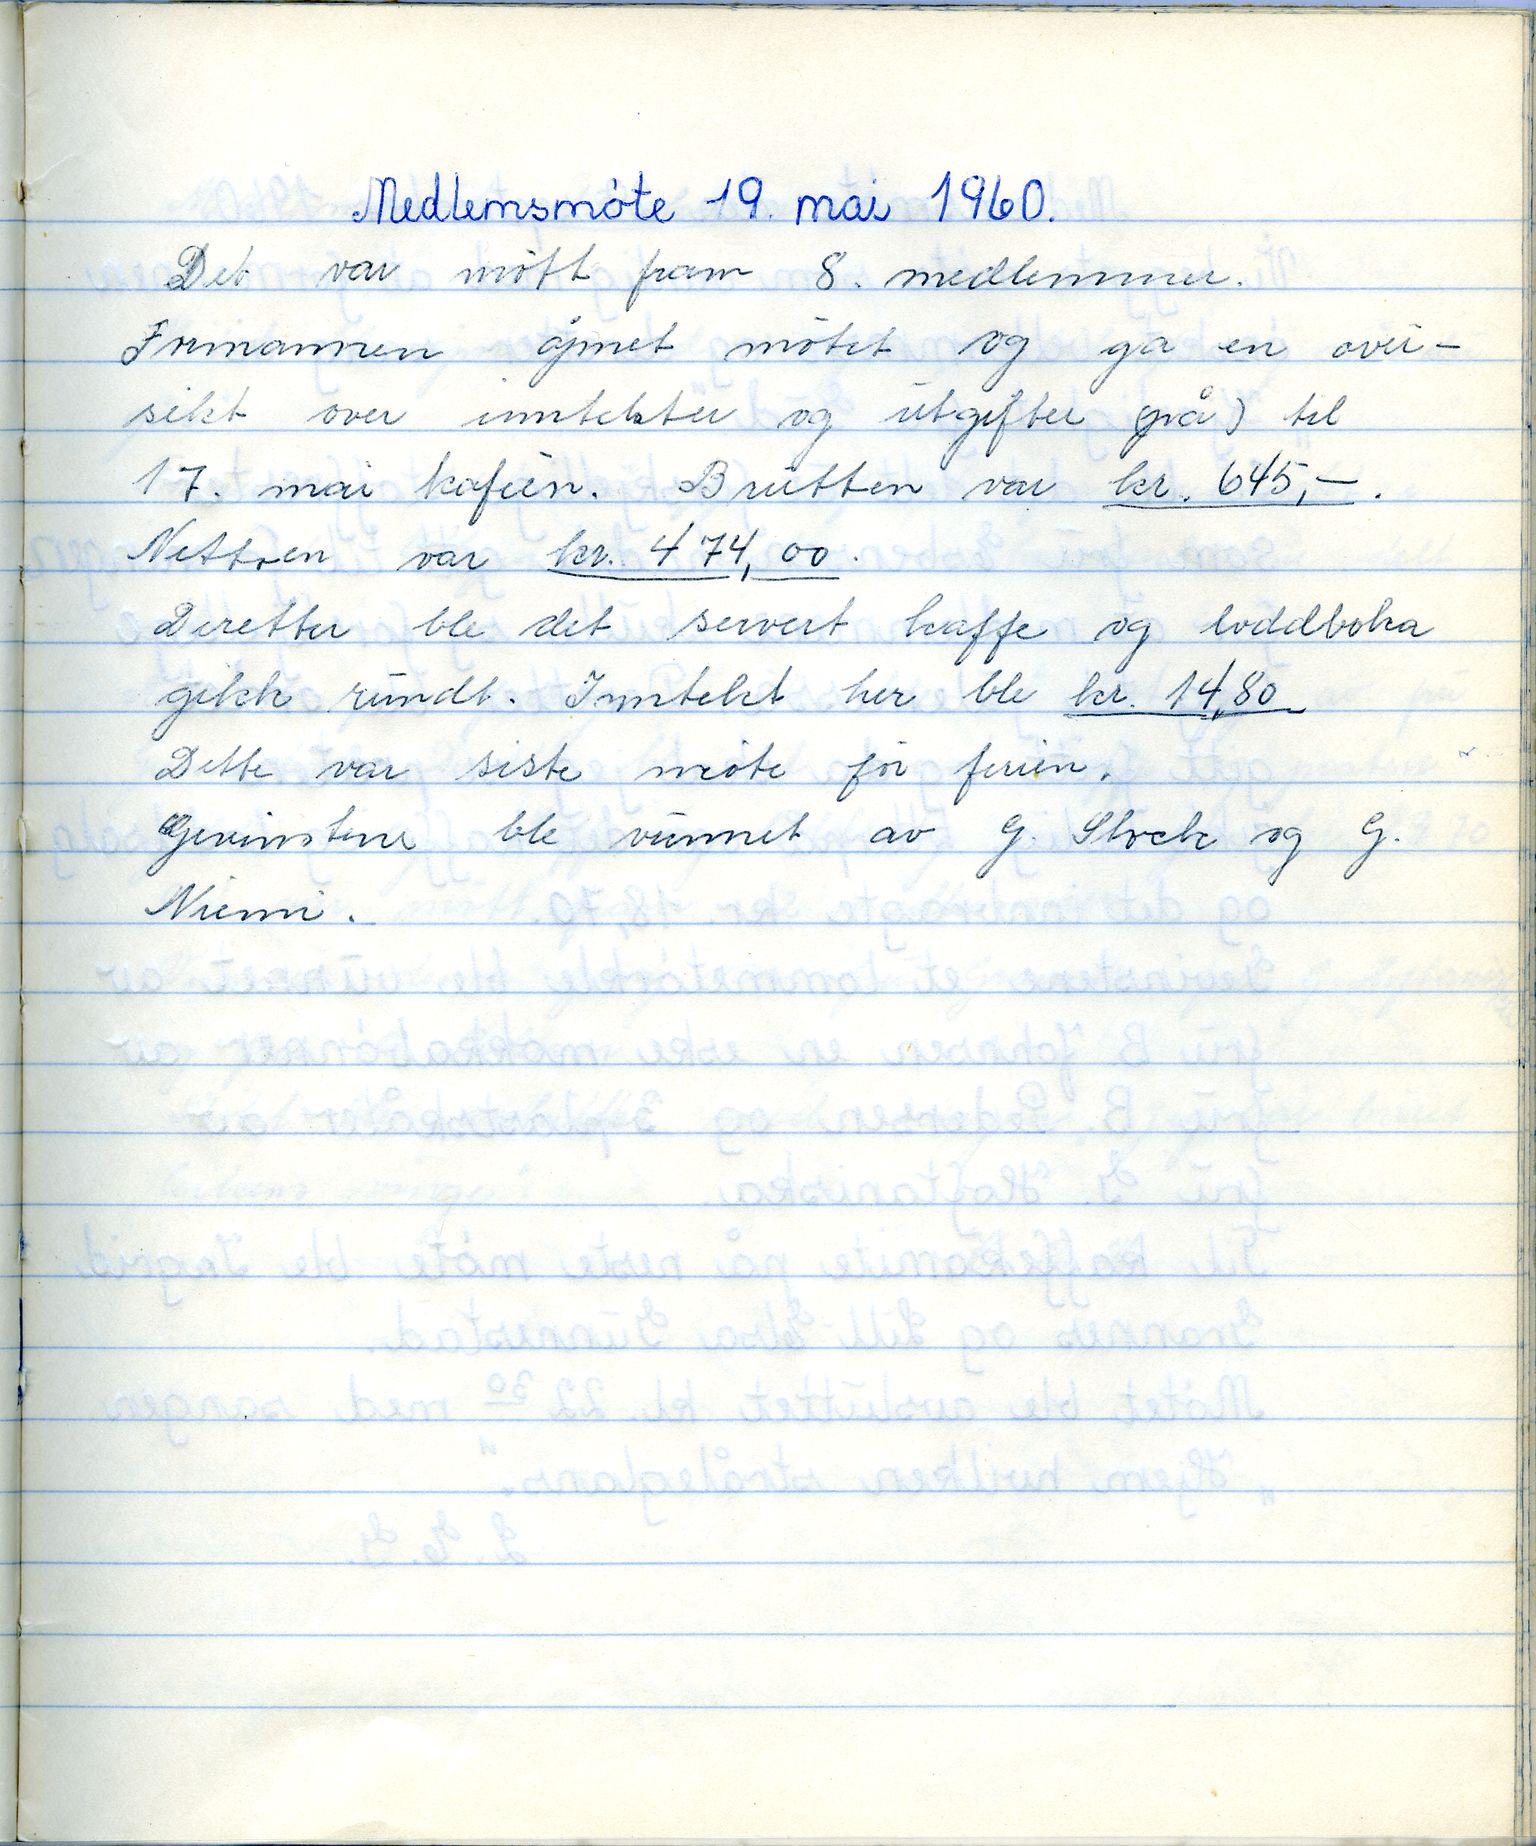 Medlemsmöte 19. mai 1960.
Det var mött fram 8. medlemmer.
Formannen åpnet mötet og ga en over-
sikt over inntekter og utgifter (på) til
17. mai kafeèn. Brutten var kr. 645,-.
Nettoen var kr. 474,00.
Deretter ble det servert kaffe og loddboka
gikk rundt. Inntekt her ble kr. 14,80
Dette var siste möte för ferien.
Gevinstene ble vunnet av G. Stock og G.
Niemi.